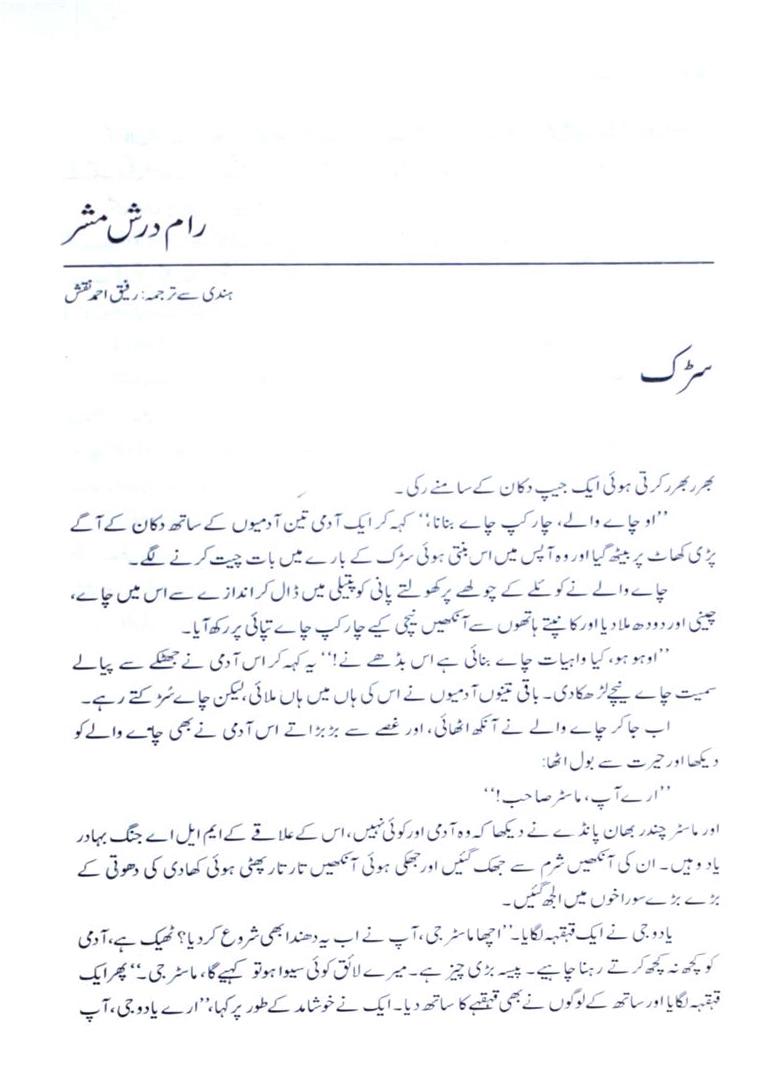 رام درش مشر
ہندی سے ترجمہ: رفیق احمد نقش
سڑک
بھرر بھرر کرتی ہوئی ایک جیپ دکان کے سامنے رکی۔
”او چاے والے، چار کپ چاے بنانا،“ کہہ کر ایک آدمی تین آدمیوں کے ساتھ دکان کے آگے
پڑی کھاٹ پر بیٹھ گیا اور وہ آپس میں اس بنتی ہوئی سڑک کے بارے میں بات چیت کرنے لگے۔
چاے والے نے کوئلے کے چولھے پر کھولتے پانی کو پتیلی میں ڈال کر اندازے سے اس میں چاے،
چینی اور دودھ ملا دیا اور کانپتے ہاتھوں سے آنکھیں نیچی کیے چار کپ چاے تپائی پر رکھ آیا۔
”اوہو ہو، کیا واہیات چاے بنائی ہے اس بڈھے نے!“ یہ کہہ کر اس آدمی نے جھٹکے سے پیالے
سمیت چاے نیچے لڑھکا دی۔ باقی تینوں آدمیوں نے اس کی ہاں میں ہاں ملائی، لیکن چاے سُڑکتے رہے۔
اب جا کر چاے والے نے آنکھ اٹھائی، اور غصے سے بڑبڑاتے اس آدمی نے بھی چاے والے کو
دیکھا اور حیرت سے بول اٹھا:
”ارے آپ، ماسٹر صاحب!“
اور ماسٹر چندر بھان پانڈے نے دیکھا کہ وہ آدمی اور کوئی نہیں، اس کے علاقے کے ایم ایل اے جنگ بہادر
یادو ہیں۔ ان کی آنکھیں شرم سے جھک گئیں اور جھکی ہوئی آنکھیں تار تار پھٹی ہوئی کھادی کی دھوتی کے
بڑے بڑے سوراخوں میں الجھ گئیں۔
یادو جی نے ایک قہقہہ لگایا۔ ”اچھا ماسٹر جی، آپ نے اب یہ دھندا بھی شروع کر دیا؟ ٹھیک ہے، آدمی
کو کچھ نہ کچھ کرتے رہنا چاہیے۔ پیسہ بڑی چیز ہے۔ میرے لائق کوئی سیوا ہو تو کہیے گا، ماسٹر جی۔“ پھر ایک
قہقہہ لگایا اور ساتھ کے لوگوں نے بھی قہقہے کا ساتھ دیا۔ ایک نے خوشامد کے طور پر کہا، ”ارے یادو جی، آپ